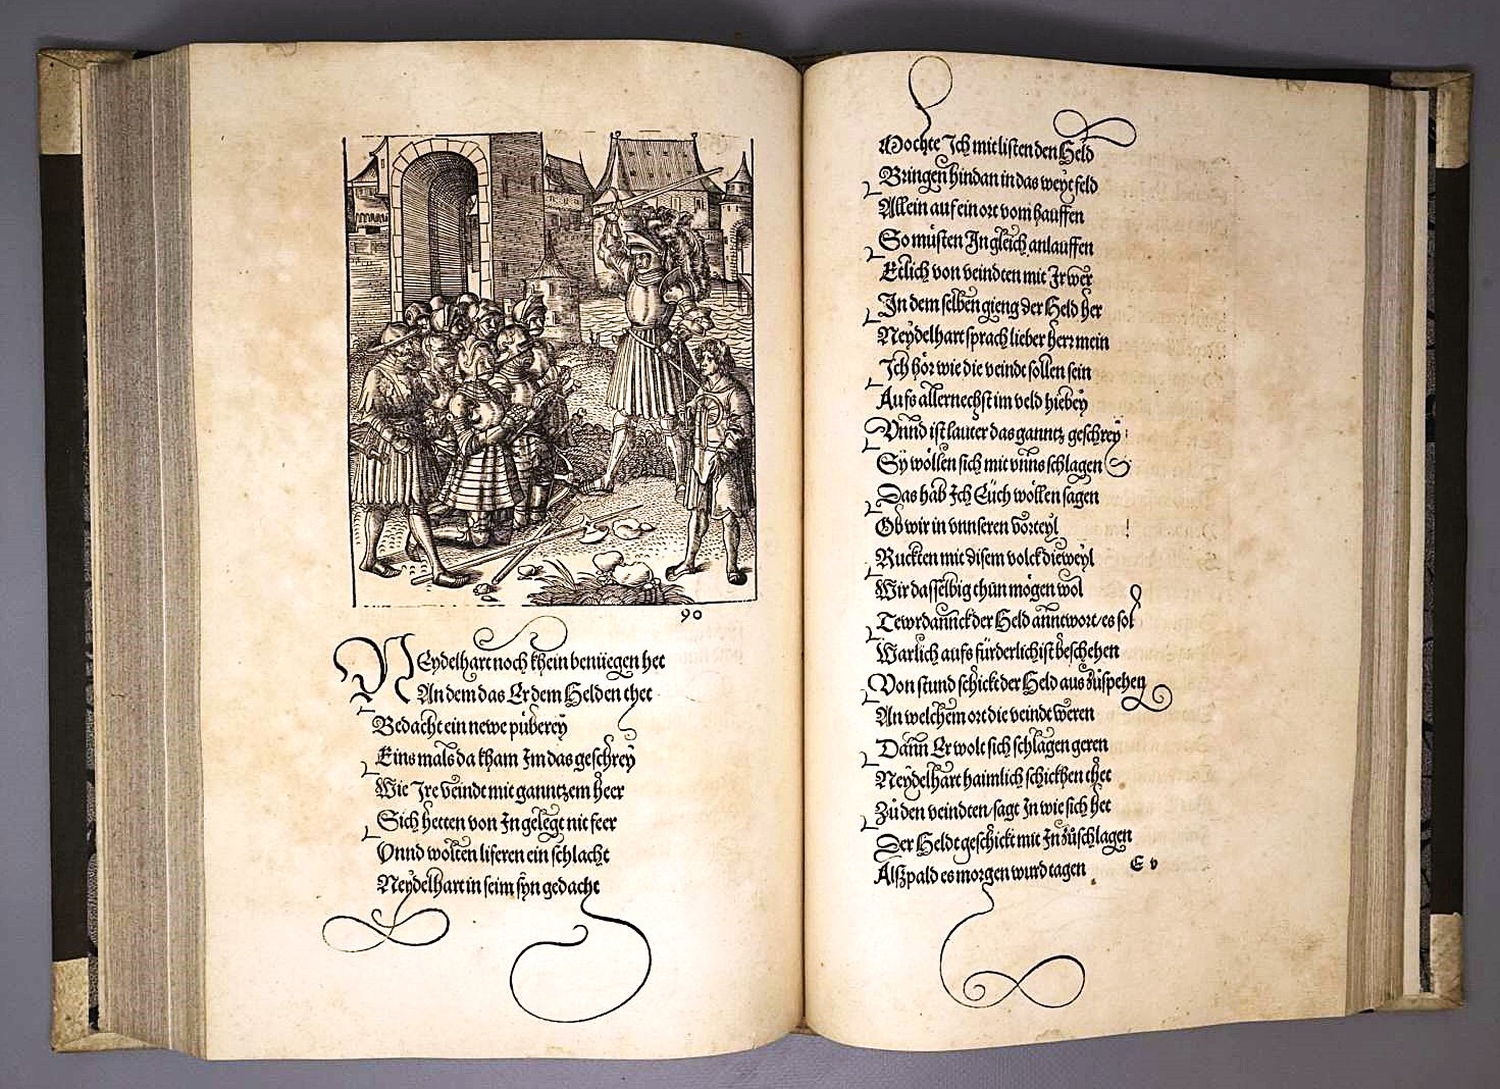 90
Neydelhart noch khein benüegen het
An dem das Er dem Helden thet
Bedacht ein newe püberey
Eins mals da kham Im das geschrey
Wie Ire veindt mit ganntzem heer
Sich hetten von In gelegt nit feer
Vnnd wolten liferen ein schlacht
Neydelhart in seim syn gedacht
Mochte Ich mit listen den Held
Bringen hindan in das weyt feld
Allein auf ein ort vom hauffen
So müsten In gleich anlauffen
Etlich von veindten mit Ir wer
In dem selben gieng der Held her
Neydelhart sprach lieber herr mein
Ich hör wie die veindt sollen sein
Aufs allernechst im veld hiebey
Vnnd ist lauter das ganntz geschrey
Sy wöllen sich mit vnns schlagen
Das hab Ich Euch wöllen sagen
Ob wir in vnnseren vorteyl
Ruckten mit disem volck dieweyl
Wir dasselbig thün mögen wol
Tewrdannck der Held anntwort/es sol
Warlich aufs fürderlichist beschehen
Von stund schickt der Held aus züspehen
An welchem ort die veindt weren
Dann Er wolt sich schlagen geren
Neydelhart haimlich schickhen thet
Zü den veindten/sagt In wie sich het
Der Heldt geschickt mit In züschlagen
Alßpald es morgen wurd tagen
E v